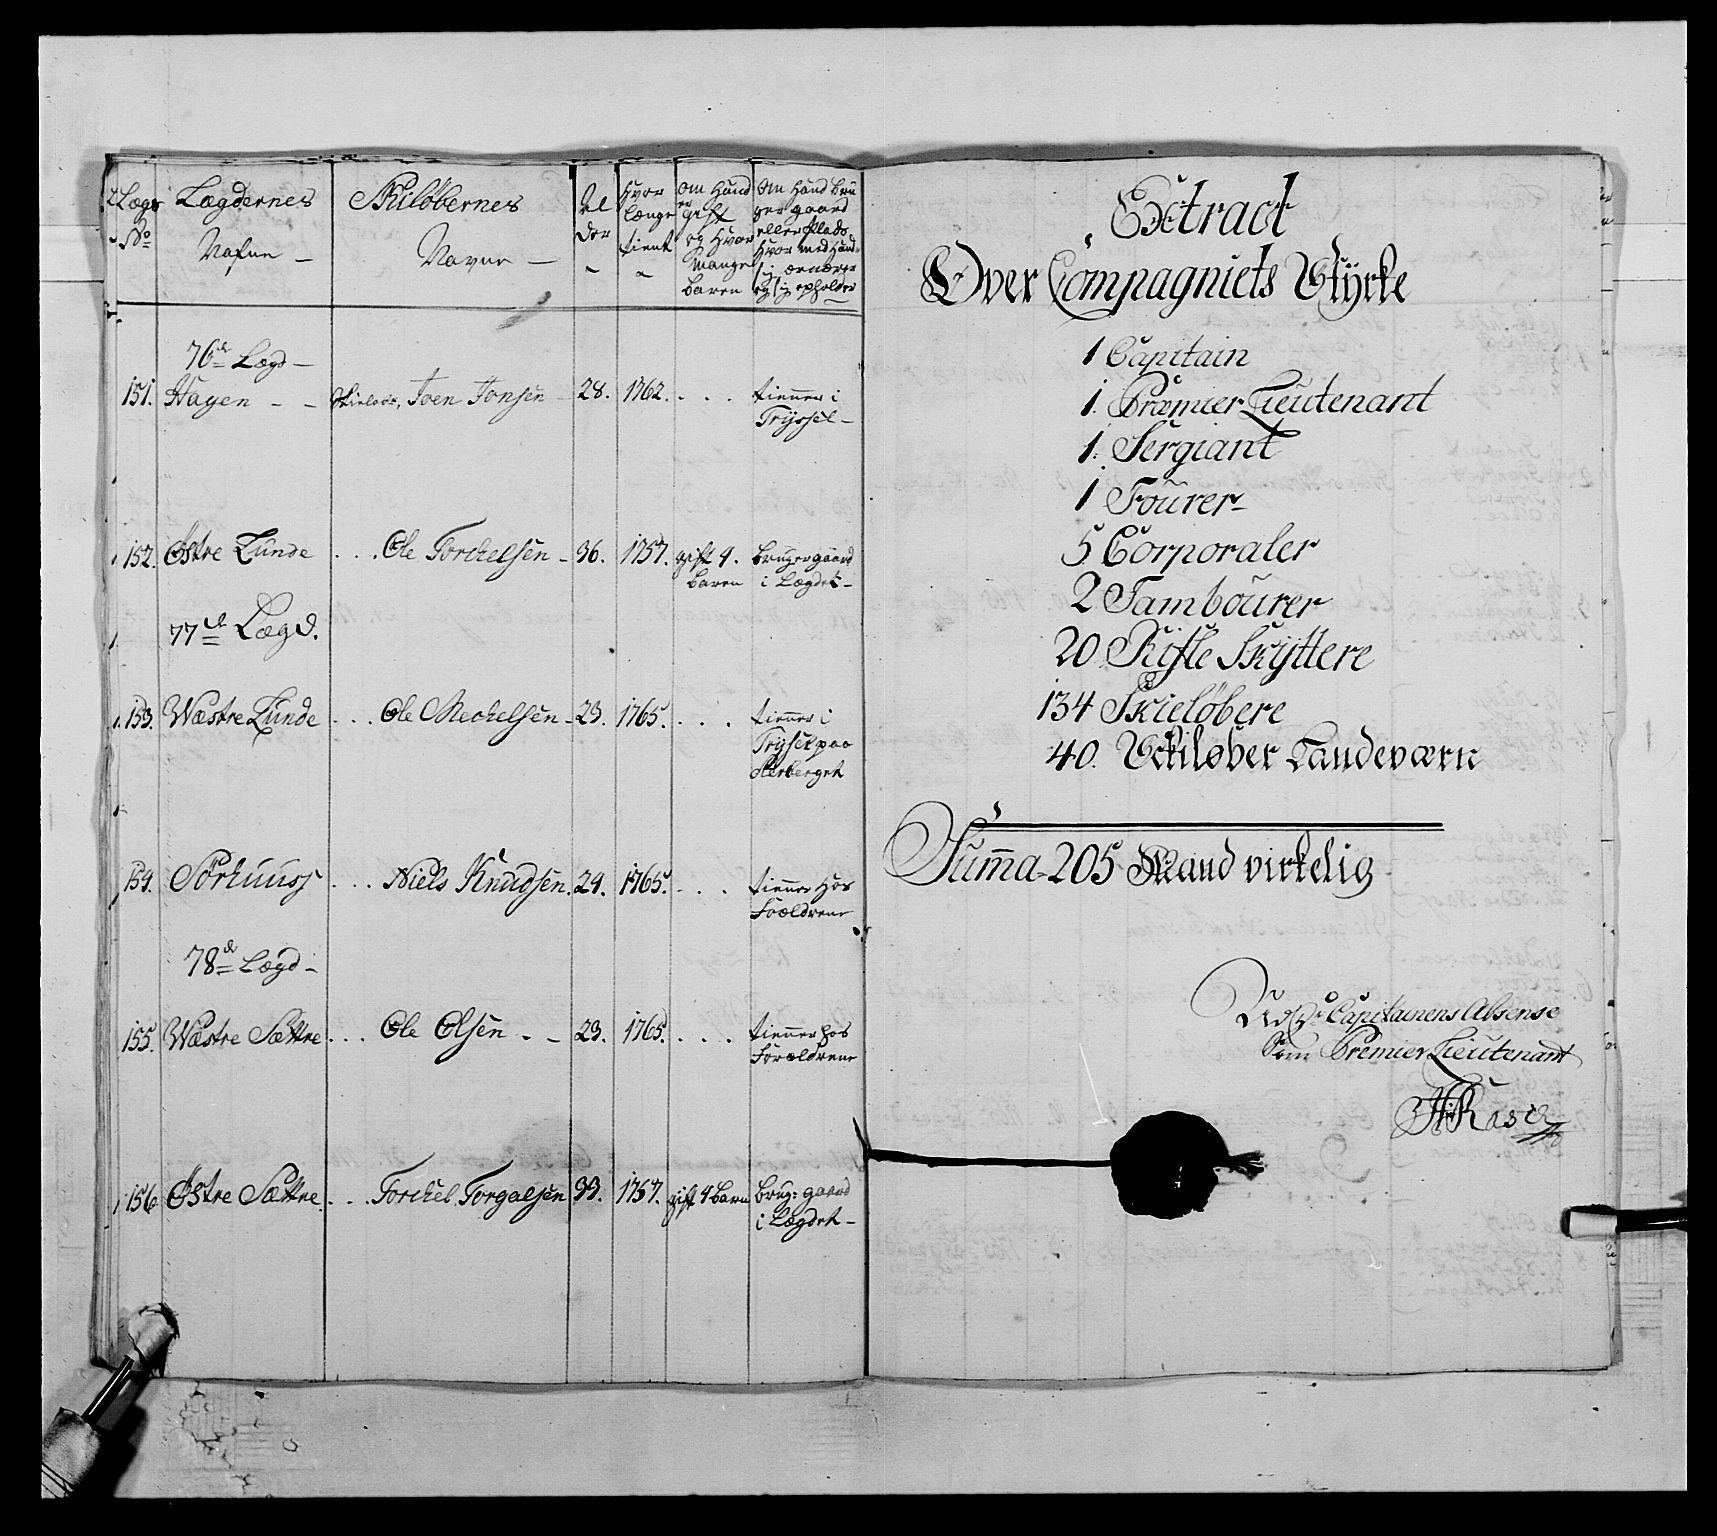 Lægs No
Lægdernes Nafne –
Skiløbernes Navne –
Al der
Hvor længe tient
Om Hand er gift og Hvor mange baren
Om Hand bru ger gaard eller Plads Hvor med Hand sig ernærer og sig opholder
76de Lægd –
151. Hagen – – Skieløb: Joen Jonsen – 28. 1762. . . . tienner i
Tryssel –
152. Østre Lunde . . . Ole Torchelsen – 36. 1757. gift 4. bruger gaard
baren i Lægdet –
77de Lægd.
153. Wæstre Lunde . . . Ole Mechelsen – 23. 1765. . . . tienner i
Trysel paa
154. Sørhuuss . . . Niels Knudsen. 24. 1765. . . . tienner Hos
Foældrene
78de Lægd –
155. Wæstre Sættre . . . Ole Olsen – – 23. 1765. . . . tienner hos
Forældrene
156. Østre Sættre . . . Torchel Torgalsen 33. 1757. gift 4 barn brug: gaard
i Lægdet –
Extract
Over Compagniets Styrke
1 Capitain
1. Præmier Lieutenant
1. Sergiant
1 Fourer
5 Corporaler
2 Tambourer
20 Rifle Skyttere
134 Skieløbere
40. Skiløber Landeværn
Summa 205 Mand virkelig
Udj Capitainens Absense
Som Premier Lieutenant